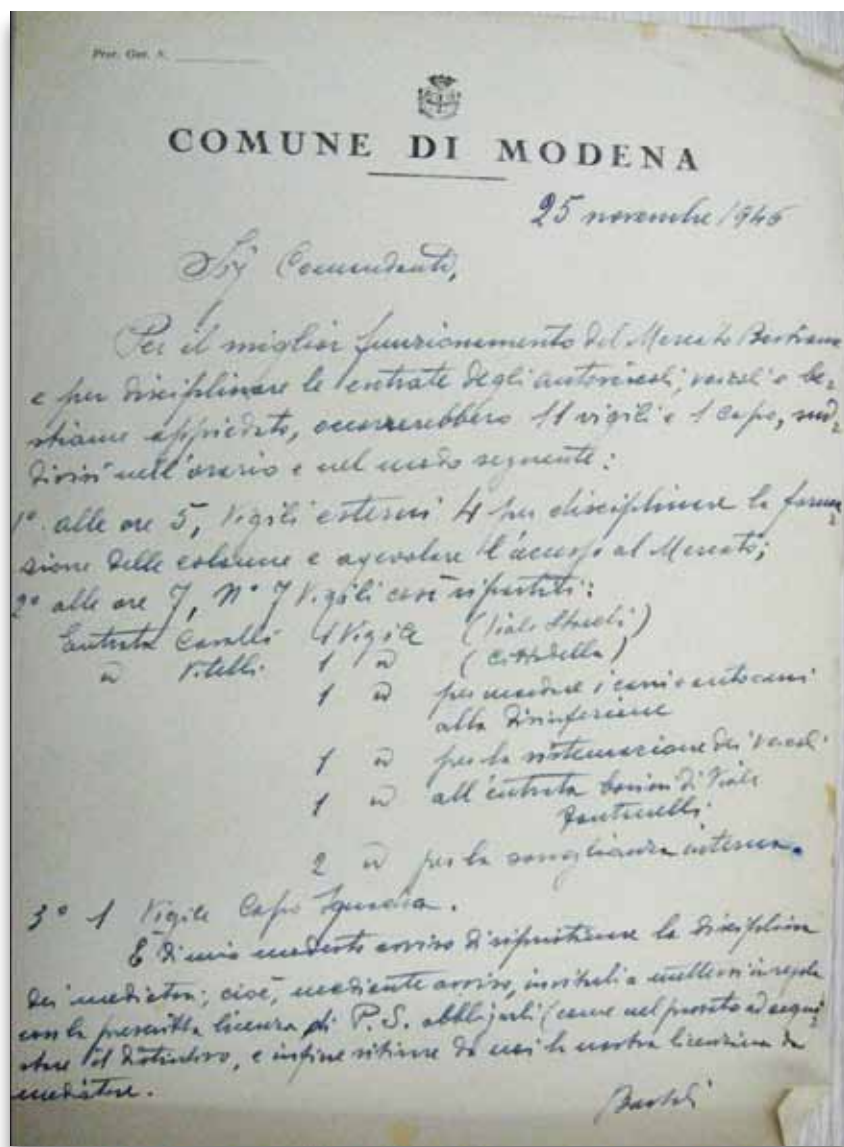 Prot. Gen. N.
COMUNE DI MODENA
25 novembre 1945
Sig Comandante,
Per il miglior funzionamento del Mercato Bestiame
e per disciplinare le entrate degli autoveicoli, veicoli e be-
stiame appiedato, occorrerebbero 11 vigili e 1 capo, sud-
divisi nell'orario e nel modo seguente:
1° alle ore 5, Vigili esterni 4 per disciplinare la forma-
zione delle colonne e agevolare l'accesso al Mercato;
2° alle ore 7, N° 7 Vigili così ripartiti:
Entrata Cavalli 1 Vigile (Viale Storchi)
id Vitelli 1 id (Cittadella)
1 id per mandare i carri e autocarri
alla disinfezione
1 id per la sistemazione dei veicoli
1 id all'entrata bovini di Viale
Fontanelli
2 id per la sorveglianza interna.
3° 1 Vigile Capo Squadra.
È di mio modesto avviso di ripristinare la disciplina
dei mediatori; cioè, mediante avviso, invitarli a mettersi in regola
con la prescritta licenza di P.S. obbligarli (come nel passato ad acqui-
stare il distintivo, e infine ritirare da noi la nostra licenzina da
mediatore.